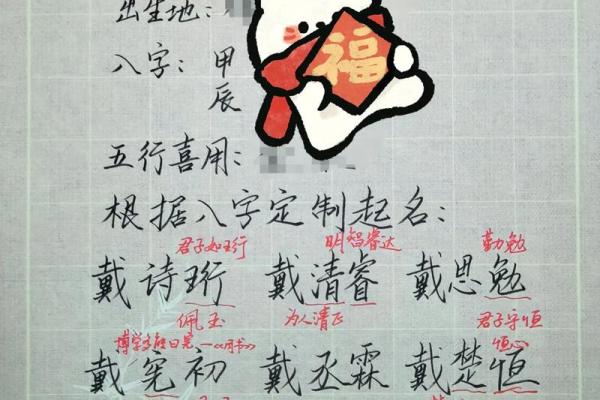 出生地：
八字：甲
辰
福
五行喜用：
根据八字定制起名：
君子如珩 明智睿达 勤勉
戴诗珩 戴清睿 戴思勉
佩玉 为人清正 君子守恒
恒心
戴宪初 戴丞霖 戴楚恒